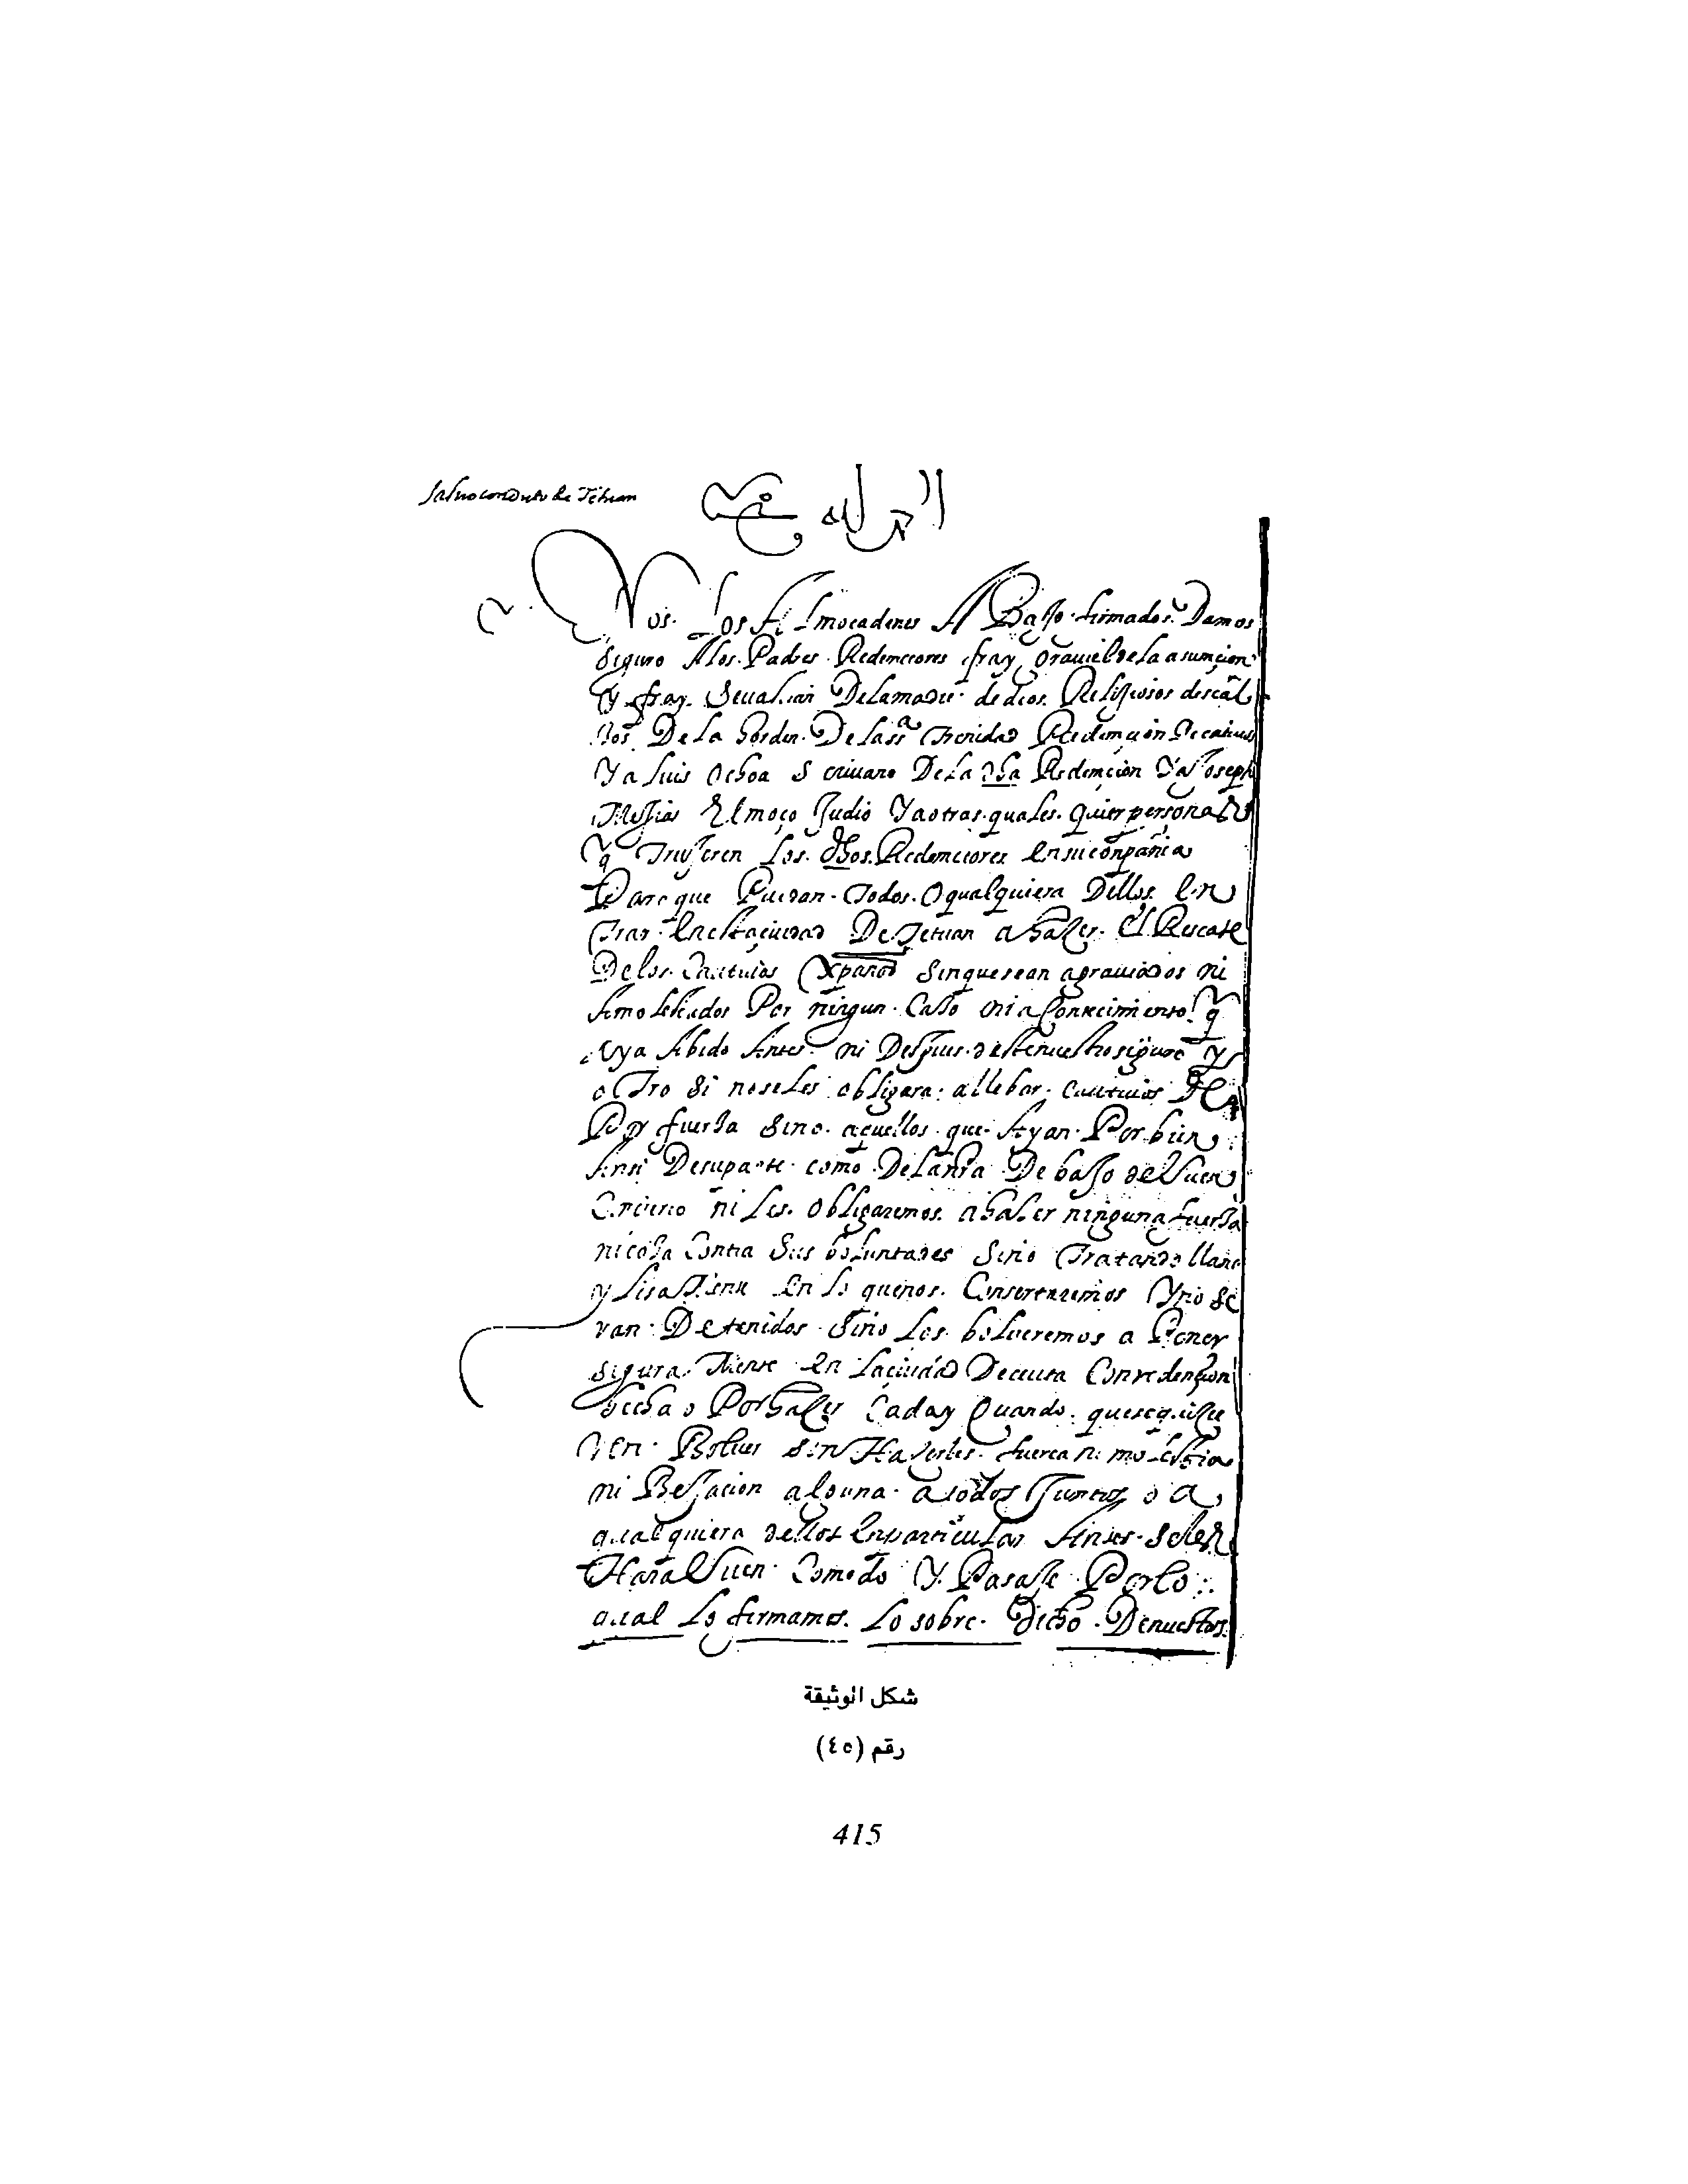 Saluoconduto de Tetuan
الحمد لله
Nos. Los Almocadenes A Baxo. firmados. Damos
Siguro A los. Padres. Redemtores fray Grauiel de la asumçion
Y fray. Seuastian De la madre de dios. Religiosos descal
ços De la horden. De la ss.ª Trenidad Redemçion De catiuos
Y a Luis Ochoa Scriuano De la dha Redemçion Y a Joseph
Messias El moço Judio Y a otras. quales. quier personas
q Truxeren Los. dhos. Redemtores En su conpañia
Para que Puedan. Todos. O qualquiera Dellos. En
Trar. En esta çiudad De Tetuan a hazer. El Rescate
De los. Cautiuos Xpanos Sin que sean agrauiados ni
Amolestados Por ningun. Caso ni aConteçimiento. q
aya Abido Antes. ni Despues. deste nuestro siguro y
oTro Si no se les obligara. a llebar. Cautiuos
Por fuersa Sino. aquellos que. Ayan. Por bien
Ansi De su parte. como De la nra De baxo del Buen
Conçierto ni Les. Obligaremos. a hazer ninguna fuersa
ni cosa Contra Sus boluntades Sino Tratando llana
y Lisa Mente En lo que nos. Consertaremos Y no Se
ran. Detenidos. Sino Los. bolueremos a Poner
Sigura. Mente En la çiudad De ceuta Con redençion
hecha o Por hazer Cada y Quando. que se quisie
ren. Boluer Sin Haserles. fuerca ni molestia
ni Bexacion alguna. a todos Juntos o a
qualquiera dellos En particular Antes. Se les
Hara Buen. Comodo Y. Pasaje Por lo
qual Lo firmamos. Lo sobre. Dicho. De nuestros.
شكل الوثيقة
رقم (٤٥)
415